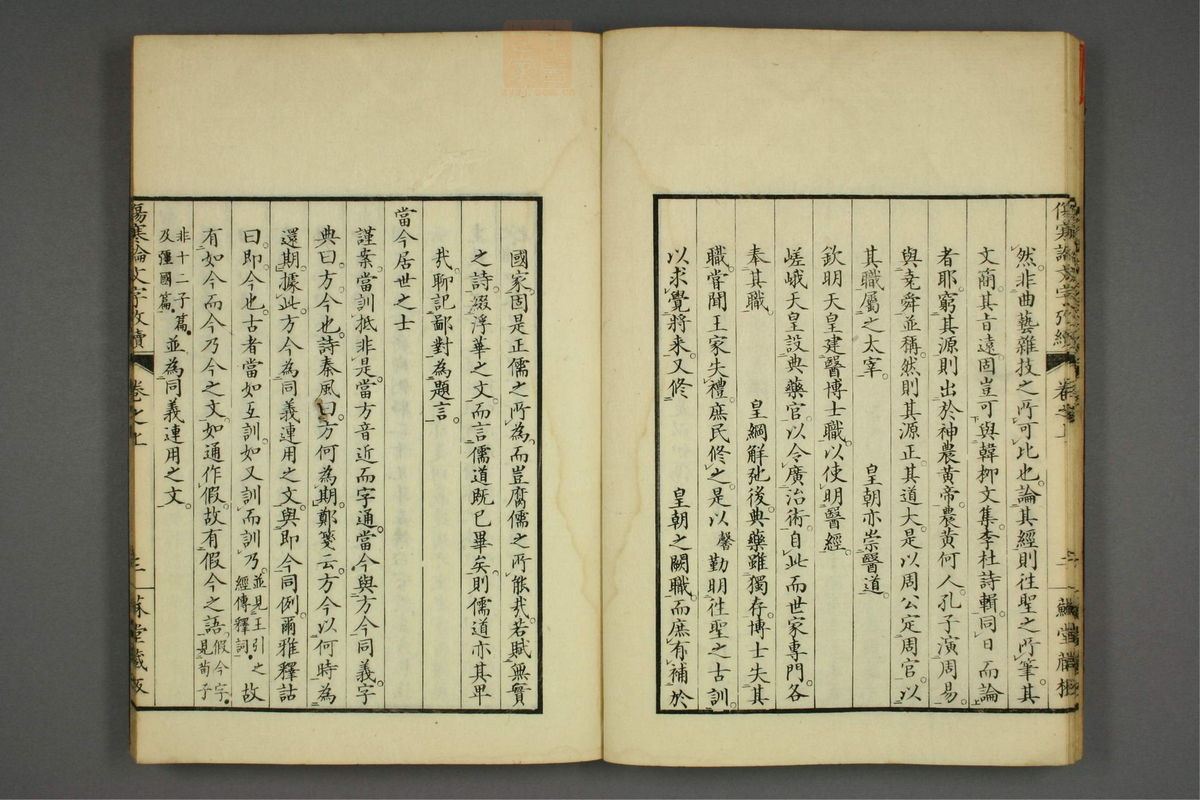 然非曲藝雜技之所可比也論其經則往聖之所筆其
文簡其旨遠固豈可與韓柳文集李杜詩輯同日而論
者耶窮其源則出於神農黃帝農黃何人孔子演周易
與堯舜並稱然則其源正其道大是以周公定周官以
其職屬之太宰　皇朝亦崇醫道
欽明天皇建醫博士職以使明醫經
嵯峨天皇設典藥官以令廣治術自此而世家專門各
奉其職　皇綱解弛後典藥雖獨存博士失其
職嘗聞王家失禮庶民修之是以馨勤明往聖之古訓
以求覺將来又修　皇朝之闕職而庶有補於
國家固是正儒之所為而豈腐儒之所能㢤若賦無實
之詩綴浮華之文而言儒道既已畢矣則儒道亦其卑
㢤聊記鄙對為題言
當今居世之士
謹案當訓抵非是當方音近而字通當今與方今同義字
典曰方今也詩秦風曰方何為期鄭箋云方今以何時為
還期據此方今為同義連用之文與即今同例爾雅釋詁
曰即今也古者當如互訓如又訓而訓乃並見王引之經傳釋詞故
有如今而今乃今之文如通作假故有假今之語假今字見荀子
非十二子篇及彊國篇並為同義連用之文
傷寒論文字攷續
卷之上
三